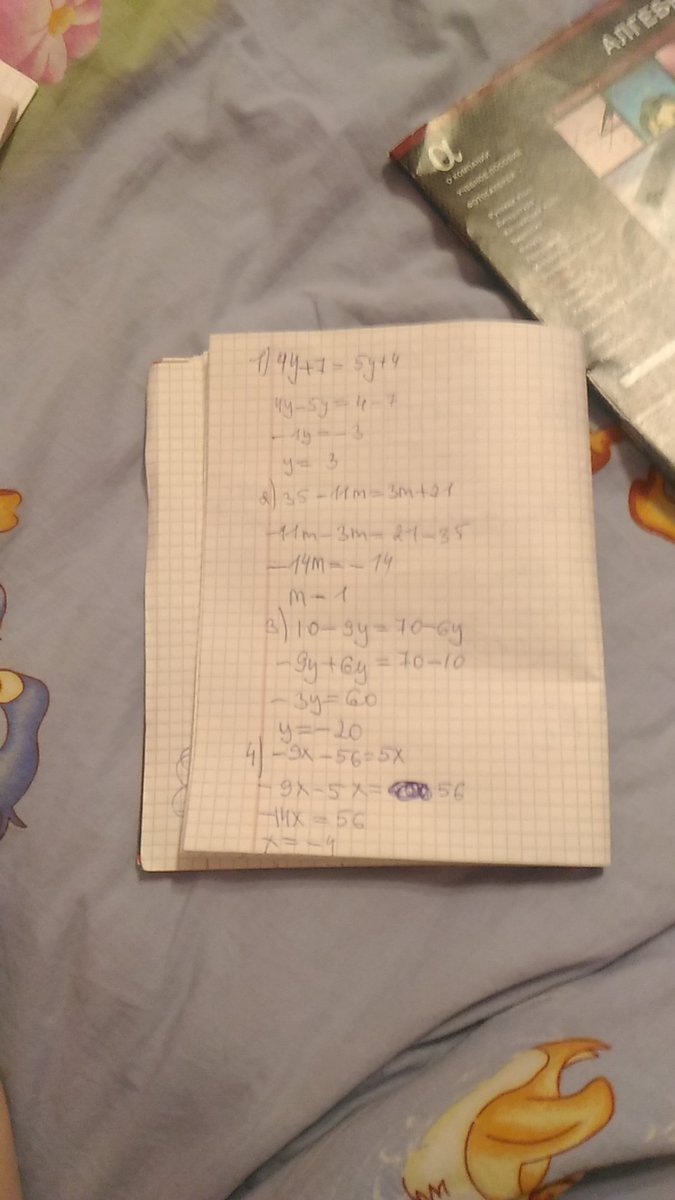 АЛГЕБ
α
О КОМПАНИИ
УЧЕБНОЕ ПОСОБИЕ
1) 4y+7=5y+4
4y-5y=4-7
-1y=-3
y= 3
2) 35-11m=3m+21
-11m-3m=21-35
-14m=-14
m-1
3) 10-9y=70-6y
-9y+6y=70-10
-3y=60
y=-20
4) -9x-56=5x
-9x-5x= 56
-14x=56
x=-4